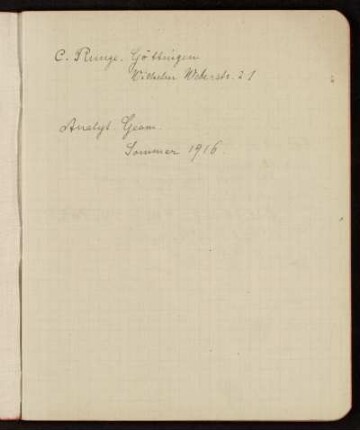 C. Runge. Göttingen
Wilhelm Weberstr. 21
Analyt. Geom.
Sommer 1916